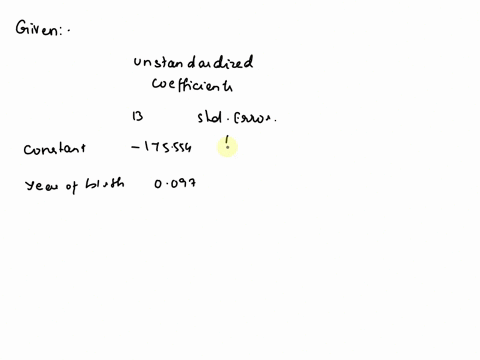 Given:-
unstandardized
coefficients
B std. Error.
constant -175.554
year of birth 0.097